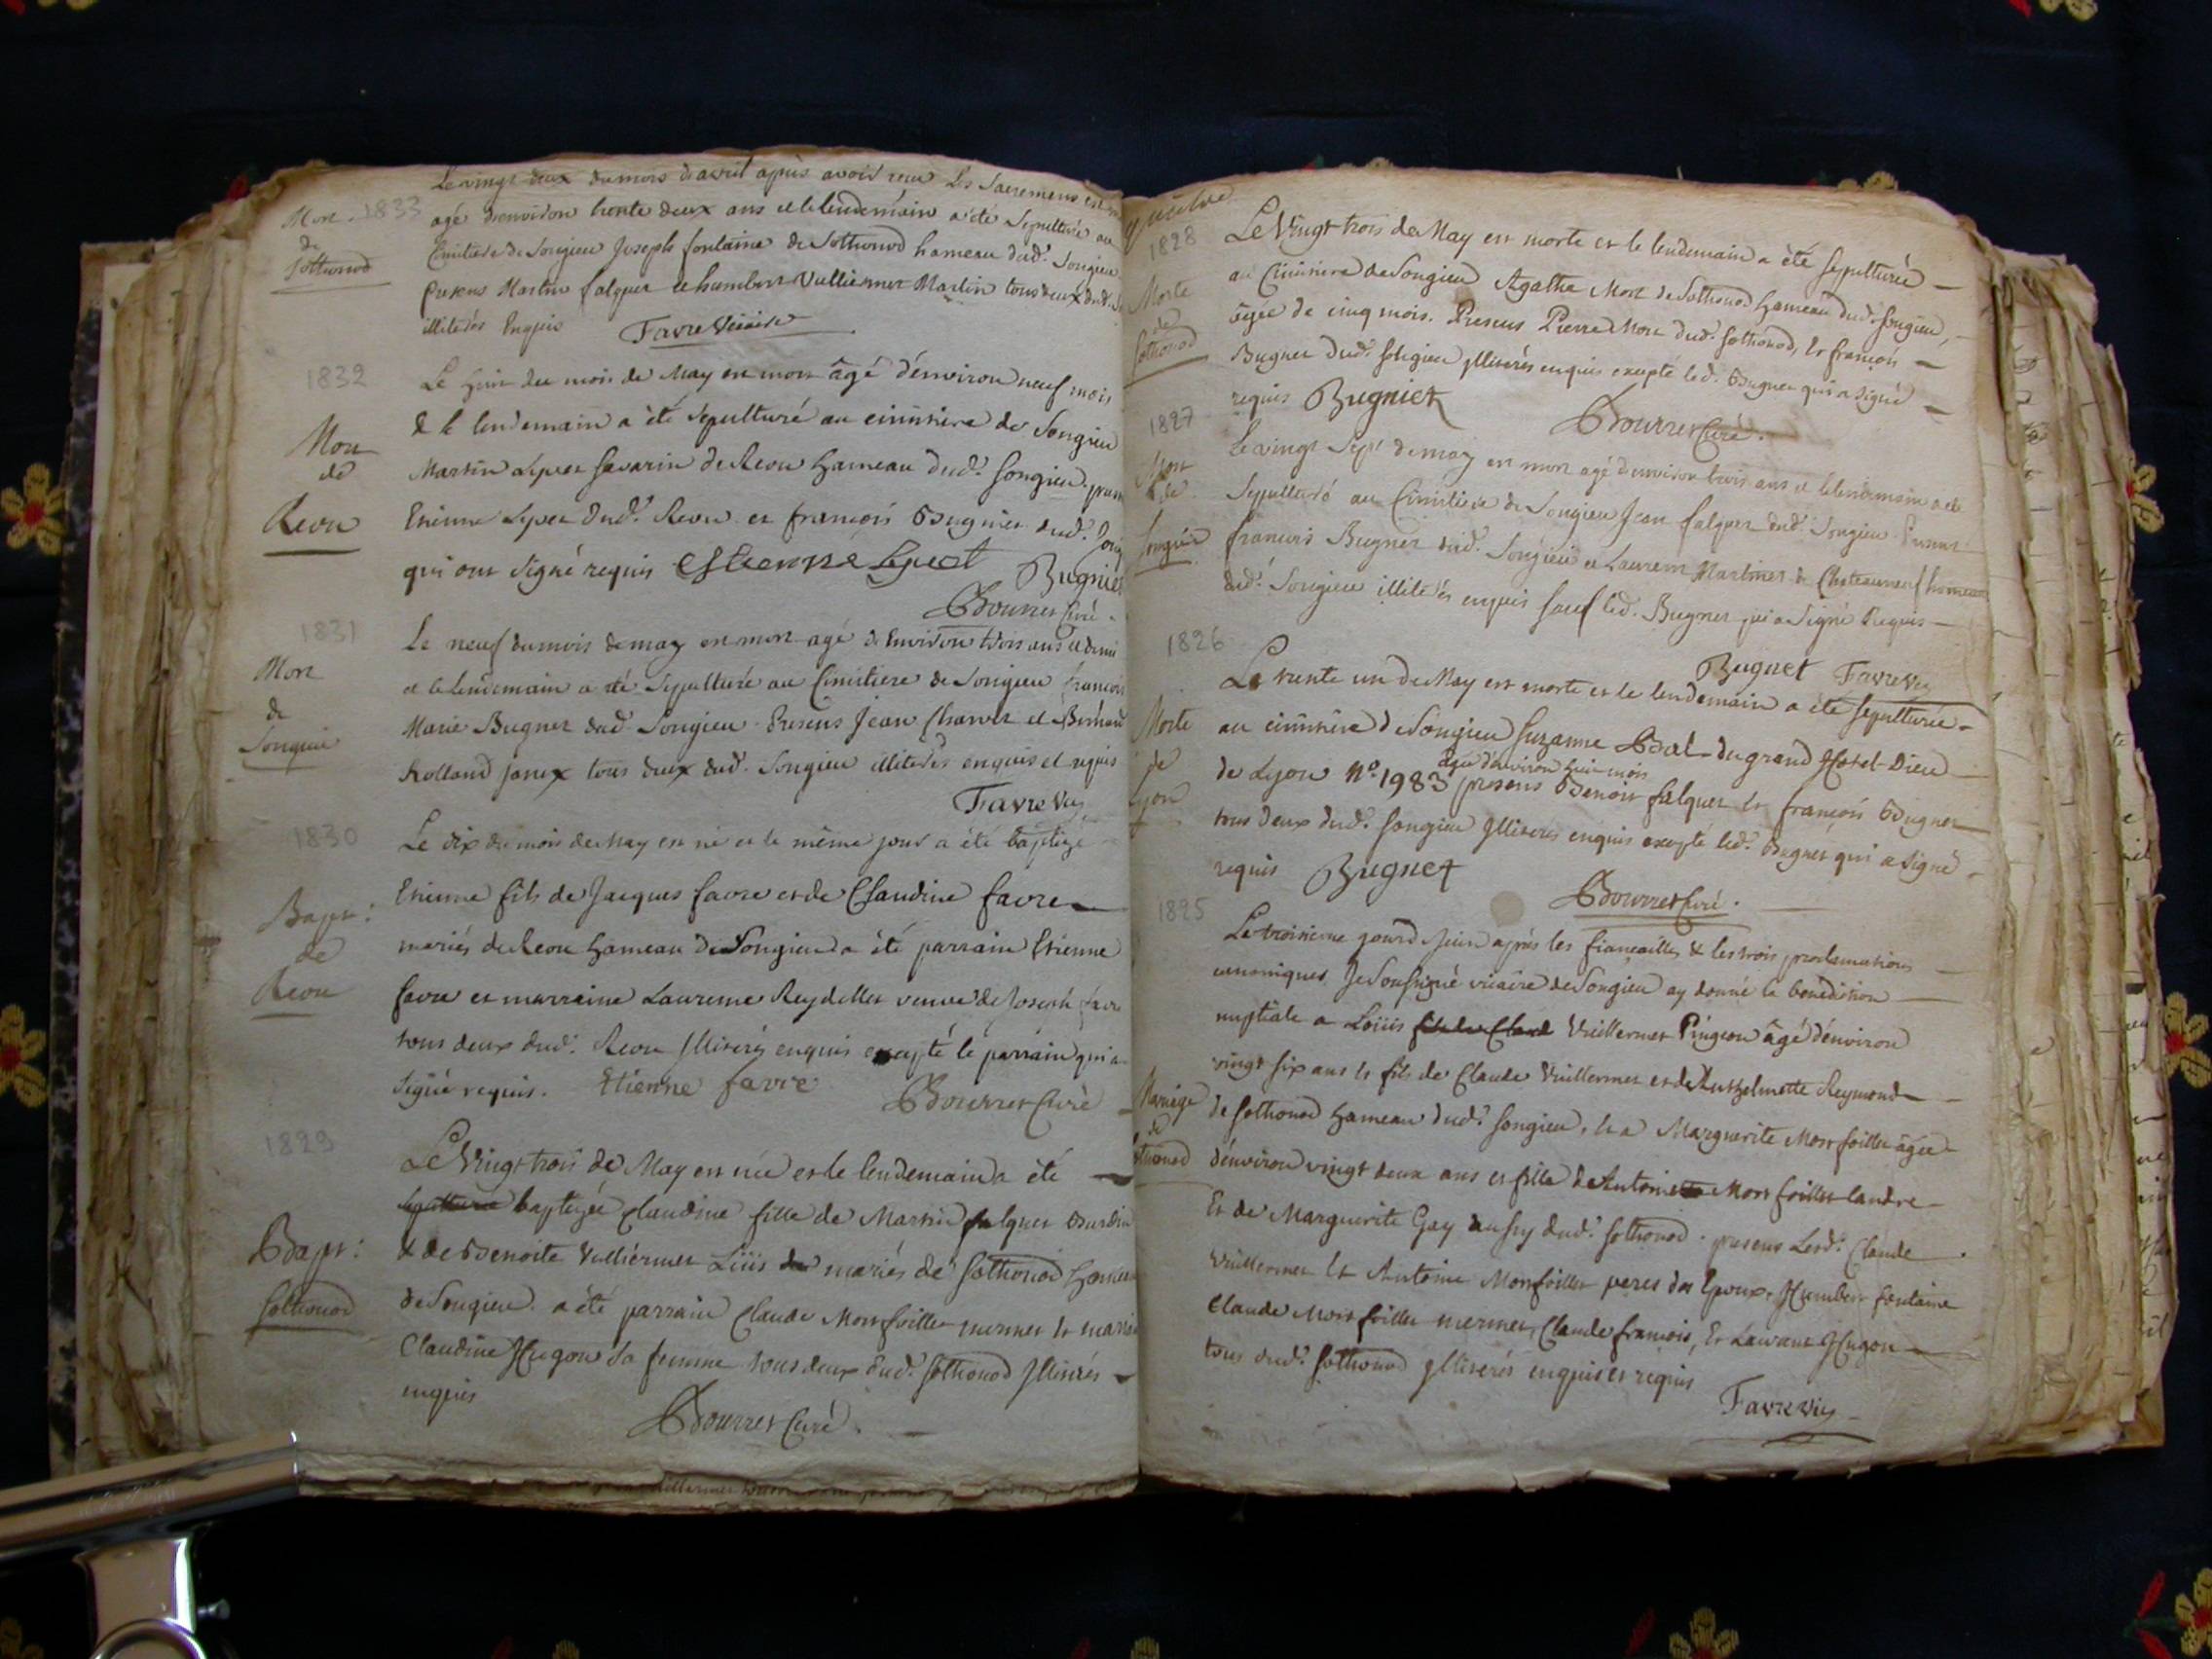 Le vingt deux du mois d'avril après avoir recu Les Sacremens est
Mort 1833
de
Sothonod
agé d'environ trente deux ans et le lendemain a été Sepulturé au
Cimitiere de Songieu Joseph fontaine de Sothonod hameau dud. Songieu
presens Martin falquet et humbert Vulliermet Martin tous deux dud. S
illiterés Enquis Favre Vicaire
1832
Mort
de
Reou
Le huit du mois de May est mort âgé d'environ neuf mois
& le lendemain a été sepulturé au cimitiere de Songieu
Martin Lyvet Savarin de Reou hameau dud. Songieu. presens
Etienne Lyvet dud. Reou et françois Bugniet dud. Song
qui ont signé requis Estienne Lyvet Bugniet
Bourret Curé.
1831
Mort
de
Songieu
Le neuf du mois de may est mort agé d'Environ trois ans et demi
et le lendemain a été Sepulturé au Cimitiere de Songieu francois
Marie Bugnet dud. Songieu. Presens Jean Charvet et Bernard
Rolland Janex tous deux dud. Songieu illiterés enquis et requis
Favre Vic
1830
Bapt:
de
Reou
Le dix du mois de May est né et le même jour a été baptizé
Etienne fils de Jacques favre et de Claudine favre
mariés de Reou hameau de Songieu a été parrain Etienne
favre et marraine Laurence Reydellet veuve de Joseph favre
tous deux dud. Reou Illiterés enquis excepté le parrain qui a
Signé requis. Etienne favre Bourret Curé
1829
Bapt:
Sothonod
Le Vingt trois de May est née et le lendemain a été
sepulturée baptizée Claudine fille de Martin falquet Burdin
& de Benoite Vulliermet Liiis de mariés de Sothonod hameau
de Songieu. a été parrain Claude Montfoillet mermet et marraine
Claudine Hugon sa femme tous deux dud. Sothonod Illiterés
enquis
Bourret Curé.
1828
Morte
de
Sothonod
Le Vingt trois de May est morte et le lendemain a été sepulturée
au Cimitiere de Songieu Agathe Mort de Sothonod hameau dud. Songieu,
agée de cinq mois. Presens Pierre Mort dud. Sothonod, et françois
Bugnet dud. Songieu Illiterés enquis excepté led. Bugnet qui a signé
requis Bugniet
Bourret Curé.
1827
Mort
de
Songieu
Le vingt Sept de may est mort agé d'environ trois ans et le lendemain a été
Sepulturé au Cimitiere de Songieu Jean falquet dud. Songieu Presens
francois Bugnet dud. Songieu et Laurent Martinet de Chateauneuf hameau
dud. Songieu illiterés enquis sauf led. Bugnet qui a Signé Requis
Bugnet Favre Vic
1826
Morte
de
Lyon
Le trente un de May est morte et le lendemain a été sepulturée
au cimitiere de Songieu Suzanne Bal du grand Hotel-Dieu
agée d'environ huit mois
de Lyon N° 1983 / presens Benoit falquet et françois Bugnet
tous deux dud. Songieu Illiterés enquis excepté led. Bugnet qui a signé
requis Bugnet
Bourret Curé.
1825
Mariage
de
Sothonod
Le troisieme jour de Juin après les fiançailles & les trois proclamations
canoniques Je Soussigné vicaire de Songieu ay donné la benediction
nuptiale a Loüis fils de Claud Vuillermet Pingeon âgé d'environ
vingt six ans et fils de Claude Vuillermet et de Reymond
de Sothonod hameau dud. Songieu, et a Marguerite Montfoillet âgée
d'environ vingt deux ans et fille de Antoine Montfoillet landre
Et de Marguerite Gay aussy dud. Sothonod. presens Lesd. Claude
Vuillermet Et Antoine Montfoillet peres des Epoux, Humbert fontaine
Claude Montfoillet mermet, Claude françois, Et Laurent Hugon
tous dud. Sothonod Illiterés enquis et requis
Favre Vic